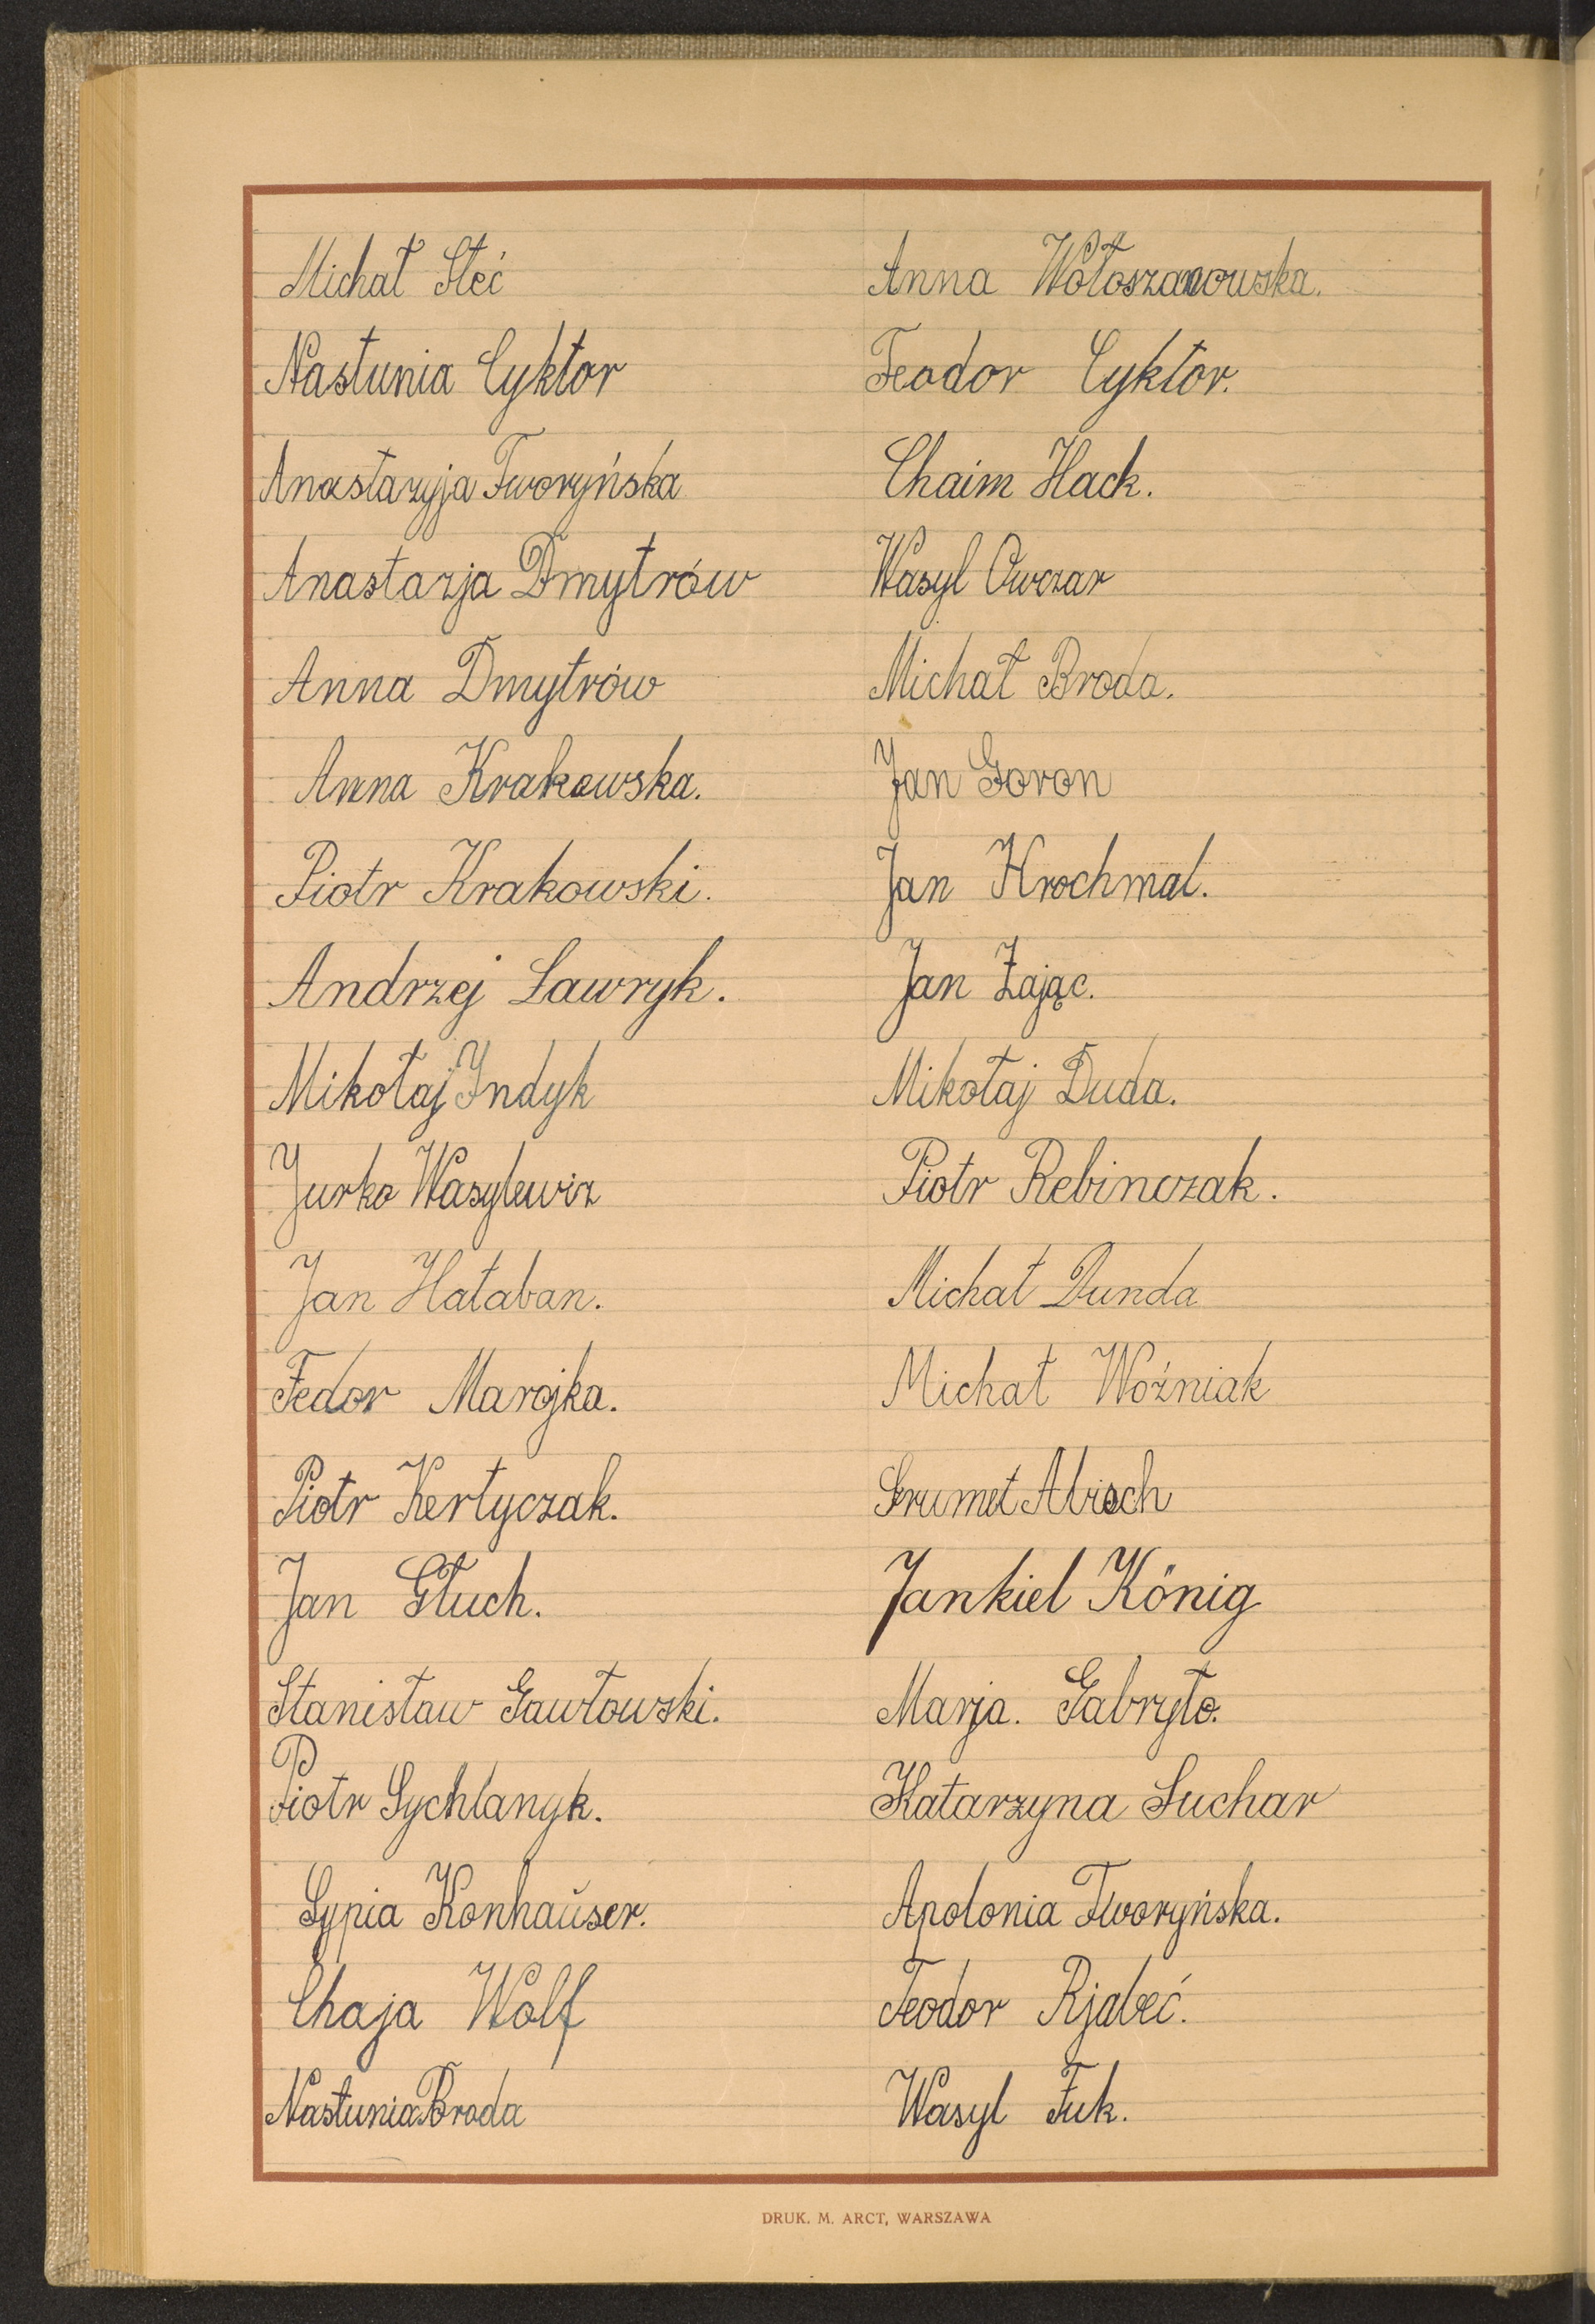 Michał Steć
Nastunia Cyktor
Anastazyja Tworyńska
Anastazja Dmytrów
Anna Dmytrów
Anna Krakowska.
Piotr Krakowski.
Andrzej Ławryk.
Mikołaj Indyk
Jurko Wasylewiz
Jan Hałaban.
Fedor Marojka.
Piotr Kertyczak.
Jan Głuch.
Stanisław Gawłowski.
Piotr Sychlanyk.
Sypia Konhaŭser.
Chaja Wolf
Nastunia Broda
Anna Wołoszanowska.
Feodor Cyktor.
Chaim Hack.
Wasyl Owczar
Michał Broda.
Jan Goron
Jan Krochmal.
Jan Zając.
Mikołaj Duda.
Piotr Rebinczak.
Michał Dunda
Michał Woźniak
Grumet Abisch
Jankiel König
Marja. Gabryło.
Katarzyna Suchar
Apolonia Tworyńska.
Teodor Rjabeć.
Wasyl Fuk.
DRUK. M. ARCT, WARSZAWA